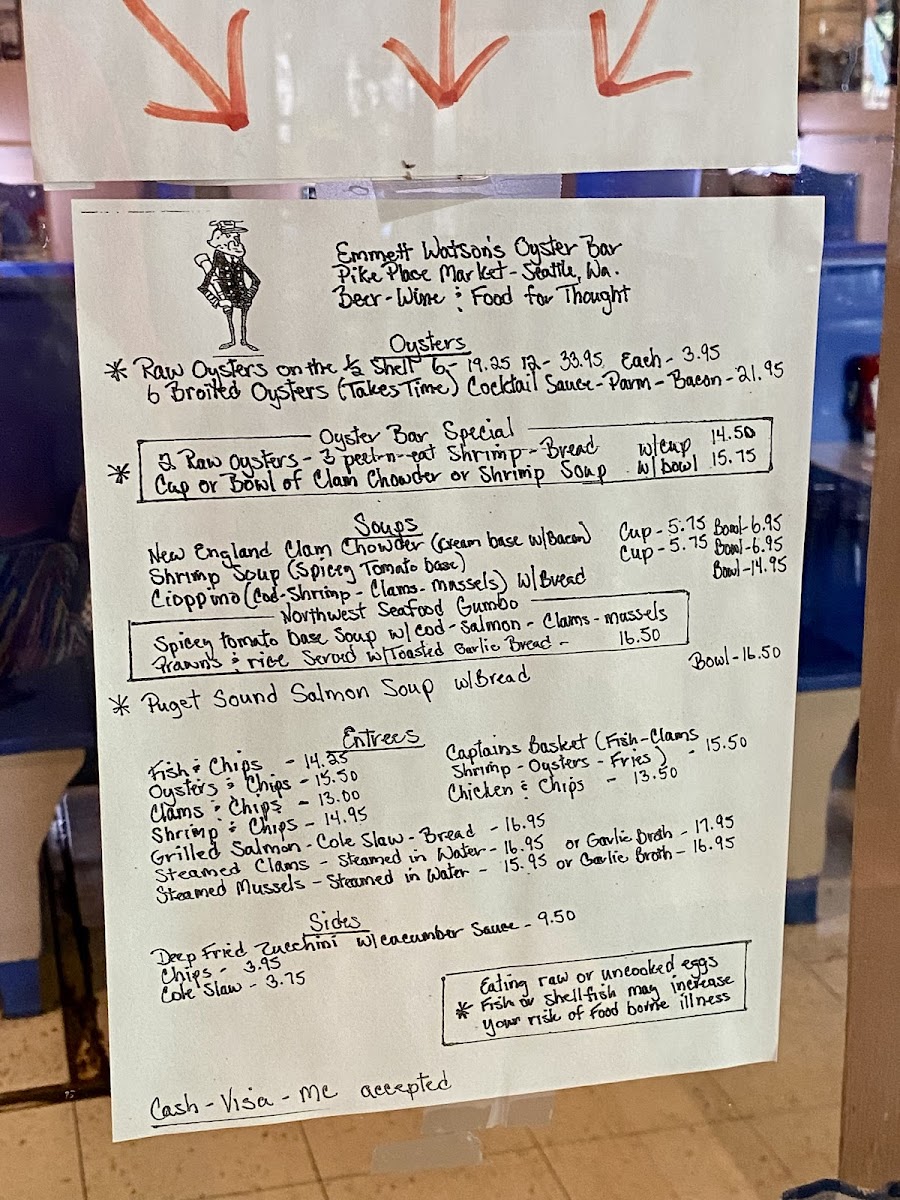 Emmett Watson's Oyster Bar
Pike Place Market - Seattle, Wa.
Beer - Wine & Food for Thought
Oysters
* Raw Oysters on the ½ Shell 6 - 19.25 12 - 33.95 Each - 3.95
6 Broiled Oysters (Takes Time) Cocktail Sauce - Parm - Bacon - 21.95
Oyster Bar Special
* 2 Raw Oysters - 3 peel-n-eat Shrimp - Bread w/cup 14.50
Cup or Bowl of Clam Chowder or Shrimp Soup w/bowl 15.75
Soups
New England Clam Chowder (Cream base w/Bacon) Cup - 5.75 Bowl - 6.95
Shrimp Soup (Spicey Tomato base) Cup - 5.75 Bowl - 6.95
Cioppino (Cod - Shrimp - Clams - mussels) w/Bread Bowl - 14.95
Northwest Seafood Gumbo
Spicey tomato base Soup w/ Cod - Salmon - Clams - mussels
Prawns & rice Served w/Toasted Garlic Bread - 16.50
* Puget Sound Salmon Soup w/Bread Bowl - 16.50
Entrees
Fish & Chips - 14.25
Oysters & Chips - 15.50
Clams & Chips - 13.00
Shrimp & Chips - 14.95
Captains Basket (Fish - Clams
Shrimp - Oysters - Fries) - 15.50
Chicken & Chips - 13.50
Grilled Salmon - Cole Slaw - Bread - 16.95
Steamed Clams - Steamed in Water - 16.95 or Garlic Broth - 17.95
Steamed Mussels - Steamed in Water - 15.95 or Garlic Broth - 16.95
Sides
Deep Fried Zucchini w/cacumber Sauce - 9.50
Chips - 3.95
Cole Slaw - 3.75
Eating raw or uncooked eggs
* Fish or Shellfish may increase
your risk of Food borne illness
Cash - Visa - MC accepted